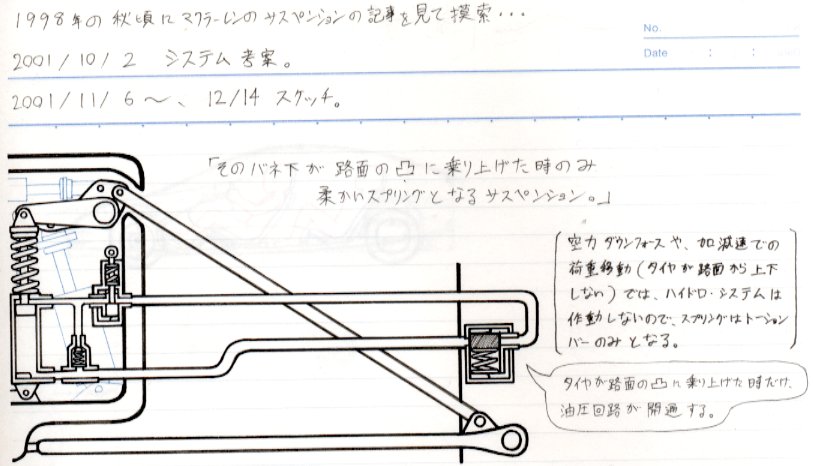 1998年の秋頃にマクラーレンのサスペンションの記事を見て摸索・・・
No.
2001/10/2 システム考案。
Date : :
2001/11/6〜、12/14 スケッチ。
「そのバネ下が路面の凸に乗り上げた時のみ
柔かいスプリングとなるサスペンション。」
空力ダウンフォースや、加減速での
荷重移動(タイヤが路面から上下
しない)では、ハイドロ・システムは
作動しないので、スプリングはトーション
バーのみとなる。
タイヤが路面の凸に乗り上げた時だけ、
油圧回路が開通する。